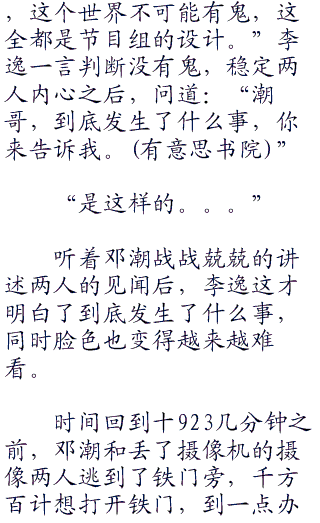 ，这个世界不可能有鬼，这
全都是节目组的设计。”李
逸一言判断没有鬼，稳定两
人内心之后，问道：“潮
哥，到底发生了什么事，你
来告诉我。(有意思书院)”
“是这样的。。。”
听着邓潮战战兢兢的讲
述两人的见闻后，李逸这才
明白了到底发生了什么事，
同时脸色也变得越来越难
看。
时间回到十923几分钟之
前，邓潮和丢了摄像机的摄
像两人逃到了铁门旁，千方
百计想打开铁门，到一点办